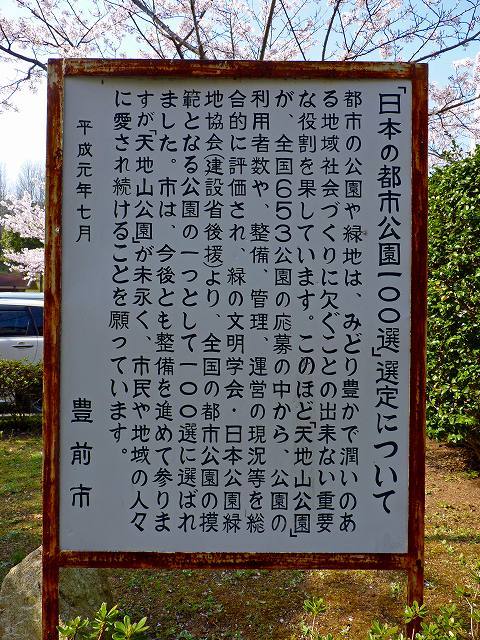 「日本の都市公園一〇〇選」選定について
都市の公園や緑地は、みどり豊かで潤いのあ
る地域社会づくりに欠ぐことの出来ない重要
な役割を果しています。このほど「天地山公園」
が、全国653公園の応募の中から、公園の
利用者数や、整備、管理、運営の現況等を総
合的に評価され、緑の文明学会・日本公園緑
地協会（建設省後援）より、全国の都市公園の模
範となる公園の一つとして一〇〇選に選ばれ
ました。市は、今後とも整備を進めて参りま
すが「天地山公園」が末永く、市民や地域の人々
に愛され続けることを願っています。
平成元年七月
豊前市